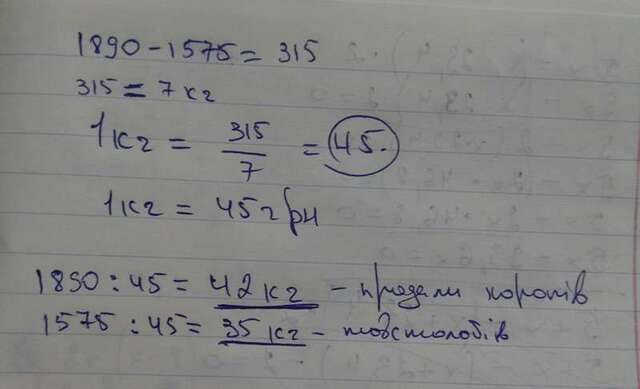 1890 - 1575 = 315
315 = 7 кг
1 кг = 315/7 = 45.
1 кг = 45 грн
1890 : 45 = 42 кг - продали коропів
1575 : 45 = 35 кг - товстолобів